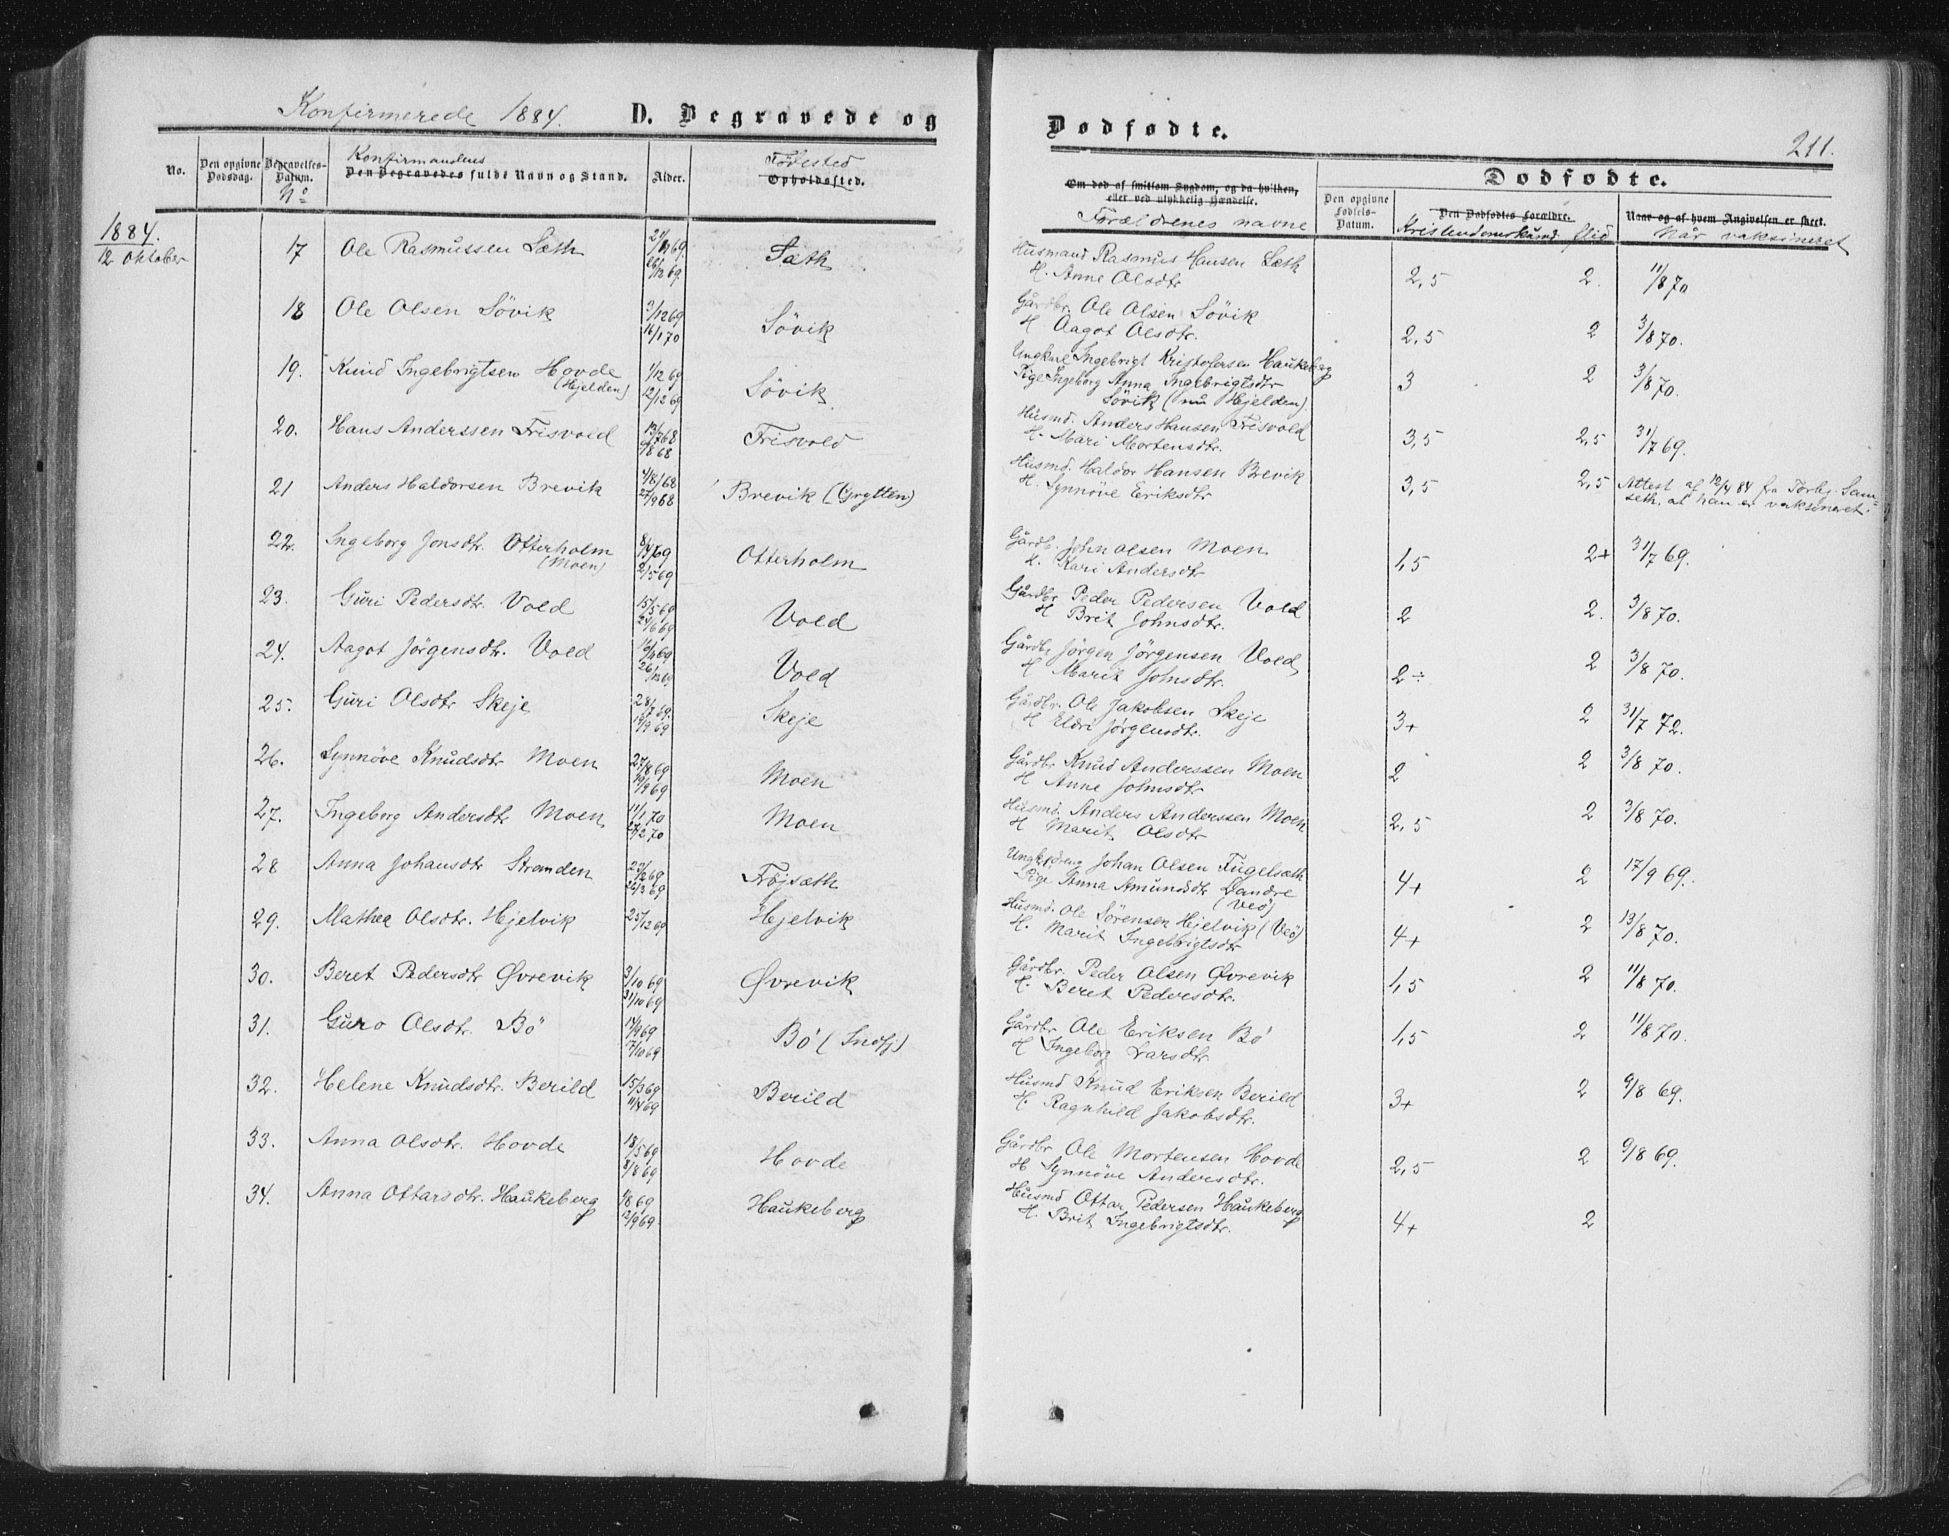 Konfirmerede 1884. D. Begravede og
Dødfødte.
211.
No.
Den opgivne Dødsdag.
Begravelses-Datum.
No
Konfirmandens
Den Begravedes fulde Navn og Stand.
Alder.
Fødested
Opholdssted.
Om død af smitsom Sygdom, og da hvilken, eller ved ulykkelig Hændelse.
Forældrenes navne
Dødfødte.
Den opgivne Fødsels-Datum.
Den Dødfødtes Forældre.
Kristendomskund. flid
Naar og af hvem Angivelsen er skeet.
Når vaksineret
1884.
12 Oktober
17 Ole Rasmussen Sæth 26/12 69. Sæth Husmand Rasmus Hansen Sæth
H. Anne Olsdtr 2,5 2. 11/8 70
18 Ole Olsen Sövik 3/12 69 16/1 70 Sövik Gårdbr. Ole Olsen Sövik
H Aagot Olsdtr. 2,5 2 3/8 70.
19. Knud Ingebrigtsen Hovde (Hjelden) 1/12 69 12/12 69 Sövik Ungkrl Ingebrigt Kristofersen Haukeberg
Pige Ingeborg Anna Ingebrigtsdtr
Sövik (nu Hjelden) 3 2 3/8 70.
20. Hans Anderssen Frisvold 13/7 68 Frisvold Husmd. Anders Hansen Frisvold
H. Mari Mortensdtr. 3,5 2,5 31/7 69.
21 Anders Haldorsen Brevik 4/8 68 27/9 68 Brevik (Grytten) Husmd. Haldor Hansen Brevik
H. Synnöve Eriksdtr 3,5 2,5 Attest af 12/4 84 fra Torbj. Sam-
seth. at han er vaksineret.
22. Ingeborg Jonsdtr. Otterholm (Moen) 8/4 69 2/5 69 Otterholm Gårdb. John Olsen Moen
H. Kari Andersdtr 1,5 2+ 31/7 69.
23. Guri Pedersdtr. Vold 15/5 69 Vold Gårdbr Peder Pedersen Vold
H Brit Johnsdtr. 2 2. 3/8 70.
24. Aagot Jörgensdtr. Vold 26/12 69 Vold Gårdbr Jörgen Jörgensen Vold
H Marit Johnsdtr. 2÷ 2 3/8 70.
25. Guri Olsdtr Skeje 28/7 69. 19/9 69 Skeje Gårdbr. Ole Jakobsen Skeje
H Eldri Jörgensdtr. 3+ 2 31/7 72.
26. Synnöve Knudsdtr Moen 27/8 69 19/9 69 Moen Gårdbr. Knud Anderssen Moen
H Anne Johnsdtr 2 2 3/8 70.
27. Ingeborg Andersdtr Moen 11/1 70 27/2 70 Moen Husmd. Anders Anderssen Moen
H Marit Olsdtr 2,5 2 3/8 70.
28 Anna Johansdtr Stranden 22/2 69 26/3 69 Fröjsæth Ungk. Johan Olsen Fugelsæth
Pige Anna Amundsdtr Dandre
(Veö) 4+ 2 17/9 69.
29. Mathea Olsdtr. Hjelvik 25/12 69 Hjelvik Husmd. Ole Sörensen Hjelvik (Veö)
H. Marit Ingebrigtsdtr 4+ 2 13/8 70.
30. Beret Pedersdtr Øvrevik 3/10 69 31/10 69 Øvrevik Gårdbr. Peder Olsen Øvrevik
H. Beret Pedersdtr. 1,5 2 11/8 70.
31. Guro Olsdtr. Bö 17/9 69 17/10 69 Bö (Indfj.) Gårdbr. Ole Eriksen Bö
H Ingeborg Larsdtr 1,5 2 11/8 70.
32. Helene Knudsdtr. Berild 15/3 69 11/4 69 Berild Husmd Knud Eriksen Berild
H. Ragnhild Jakobsdtr. 3+ 2 9/8 69.
33. Anna Olsdtr. Hovde 18/5 69 8/8 69 Hovde Gårdbr Ole Mortensen Hovde
H Synnöve Andersdtr. 2,5 2 9/8 69.
34. Anna Ottarsdtr. Haukeberg 12/9 69. Haukeberg Husmd Ottar Pedersen Haukeberg
H. Brit Ingebrigtsdtr. 4+ 2